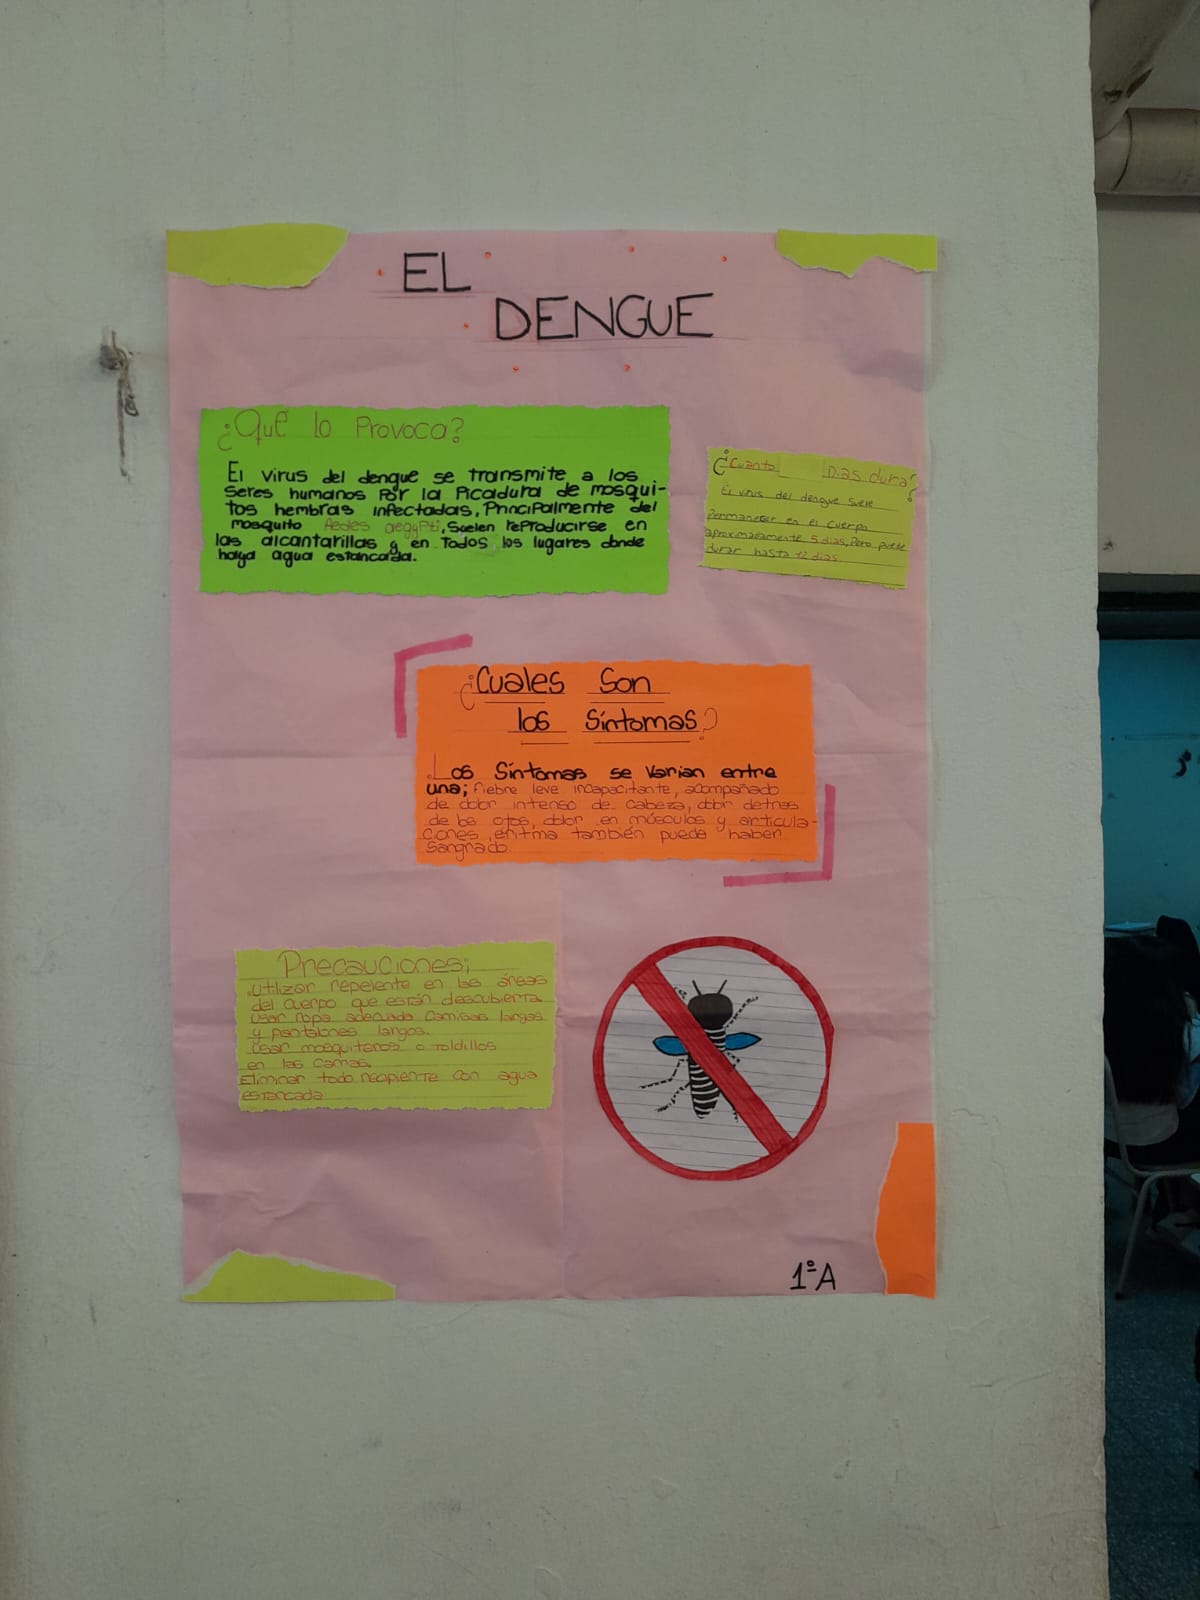 EL
DENGUE
¿Qué lo Provoca?
El virus del dengue se transmite a los
seres humanos Por la Picadura de mosqui-
tos hembras infectadas, Principalmente del
mosquito Aedes aegyPti, Suelen reProducirse en
las alcantarillas y en Todos los lugares donde
haya agua estancada.
¿Cuanto Dias dura?
El virus del dengue suele
Permanecer en el cuerpo
aproximadamente 5 dias, Pero puede
durar hasta 12 dias.
¿Cuales Son
los Síntomas?
Los Síntomas se Varian entre
una; fiebre leve incapacitante, acompañado
de dolor intenso de cabeza, dolor detras
de los ojos, dolor en músculos y articula-
ciones, eritma también puede haber
Sangrado.
Precauciones;
Utilizar repelente en las áreas
del cuerpo que están descubierta.
Usar ropa adecuada Camisas largas
y pantalones largos.
Usar mosquiteros o Toldillos
en las camas.
Eliminar todo recipiente con agua
estancada
1ºA